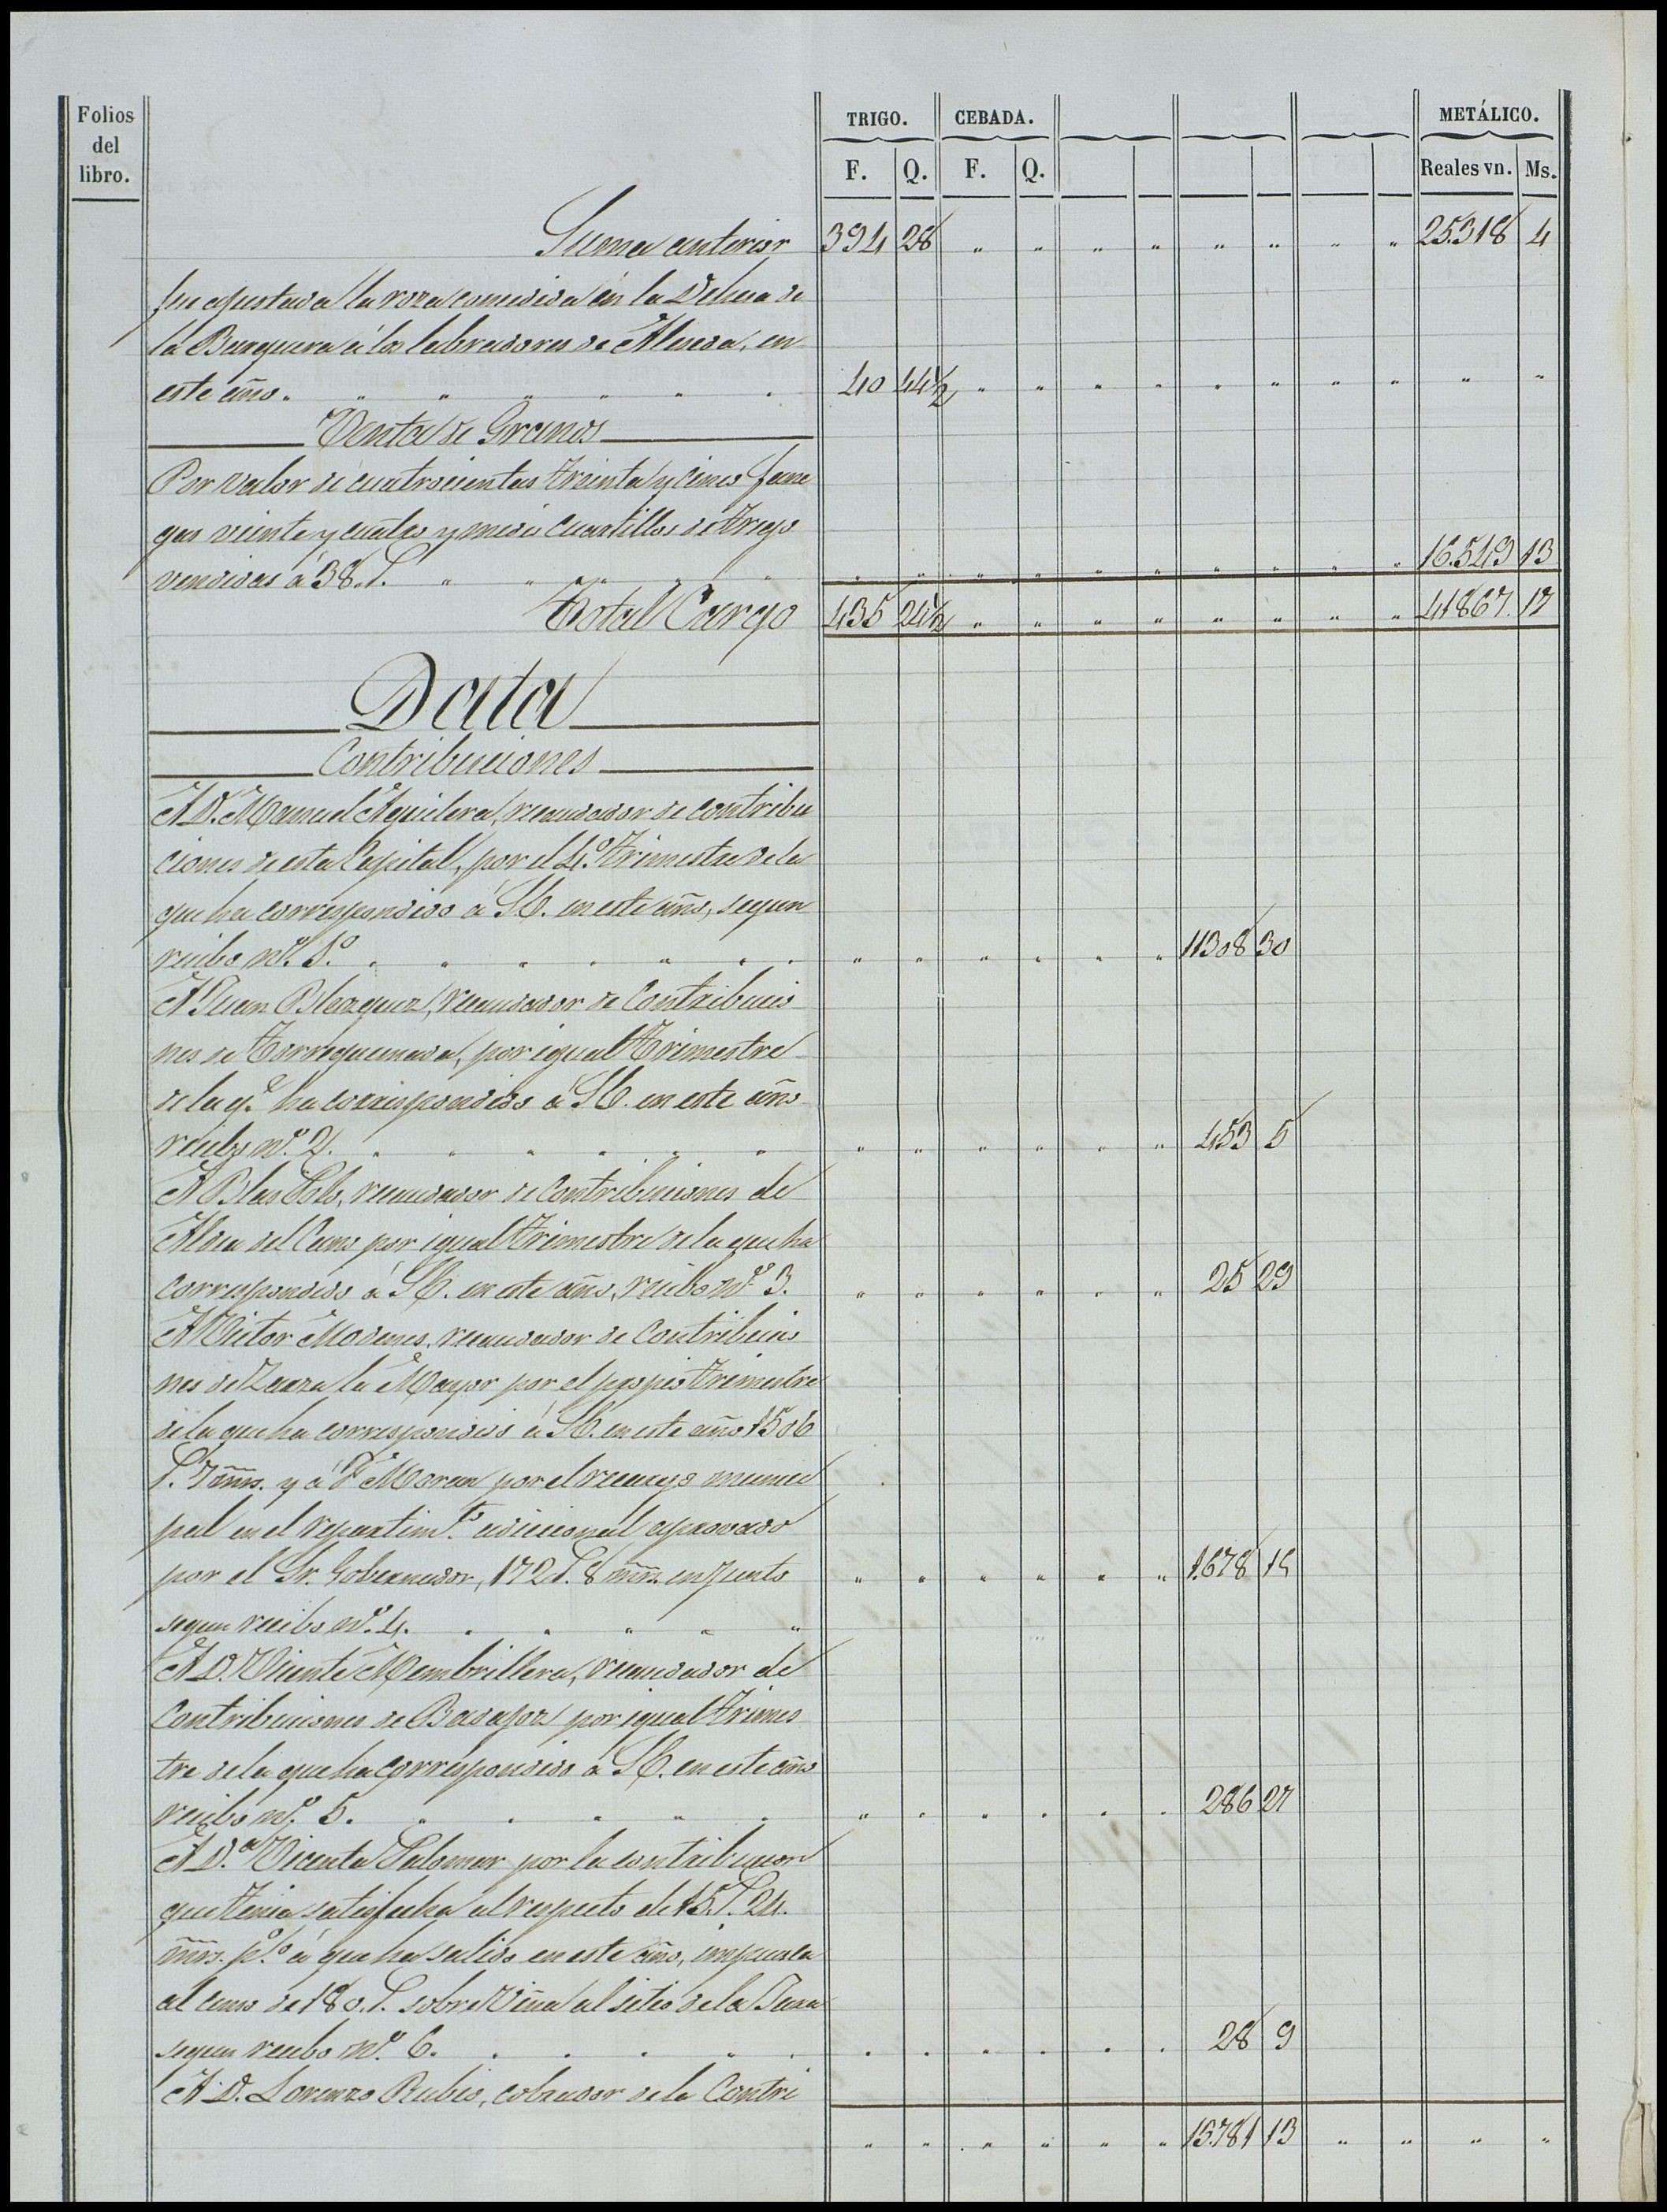 Folios del libro.
TRIGO. CEBADA. METÁLICO.
F. Q. F. Q. Reales vn. Ms.
Suma anterior 394 28 " " " " " " " " 25.318 4
fue ajustada la roza comedida en la Dehesa de
la Burquera á los labradores de Aliseda, en
este año. " " " " " " 40 44½ " " " " " " " " " "
Venta de Granos
Por valor de cuatrocientas treinta y cinco fane
gas veinte y cuatro y medio cuartillos de trigo
vendidas á 38. r. " " " " " " " " " " " " " " " 16.549 13
Total Cargo 435 24½ " " " " " " " " 41867. 17
Data
Contribuciones
A D. Manuel Aguilera, recaudador de contribu
ciones de esta Capital, por el 4.º trimestre de la
que ha correspondido á S.E. en este año, segun
recibo nº. 1.º " " " " " " " " " " " " 11308 30
A Juan Blazquez, recaudador de Contribucio
nes de Torrequemada, por igual trimestre
de la q.e ha correspondido á S.E. en este año
recibo nº. 2. " " " " " " " " " " " " 453 5
A Blas Polo, recaudador de Contribuciones de
Aldea del Cano por igual trimestre de la que ha
correspondido á S.E. en este año, recibo nº 3. " " " " " " 25 29
A Victor Modenes, recaudador de Contribucio
nes de Zarza la Mayor por el propio trimestre
de la que ha correspondido á S.E. en este año 1506
r. 7 mrs. y á F. Moran por el recargo munici
pal en el repartim.to adicional aprovado
por el Sr. Gobernador, 172 r. 8 mrs. en junto " " " " " " 1.678 15
segun recibo nº. 4. " " " " "
A D. Vicente Membrillera, recaudador de
Contribuciones de Badajoz por igual trimes
tre de la que ha correspondido á S.E. en este año
recibo nº. 5. " " " " " " " " " " " " 286 27
A D.a Vicenta Palomar por la contribucion
que tenia satisfecha al respecto de 15 r. 24.
mrs. p.º/o á que ha salido en este año, impuesta
al censo de 180. r. sobre Viña al sitio de la
segun recibo nº. 6. " " " " " " " " " " " 28 9
A D. Lorenzo Rubio, cobrador de la Contri
" " " " " " 13.781 13 " " " "